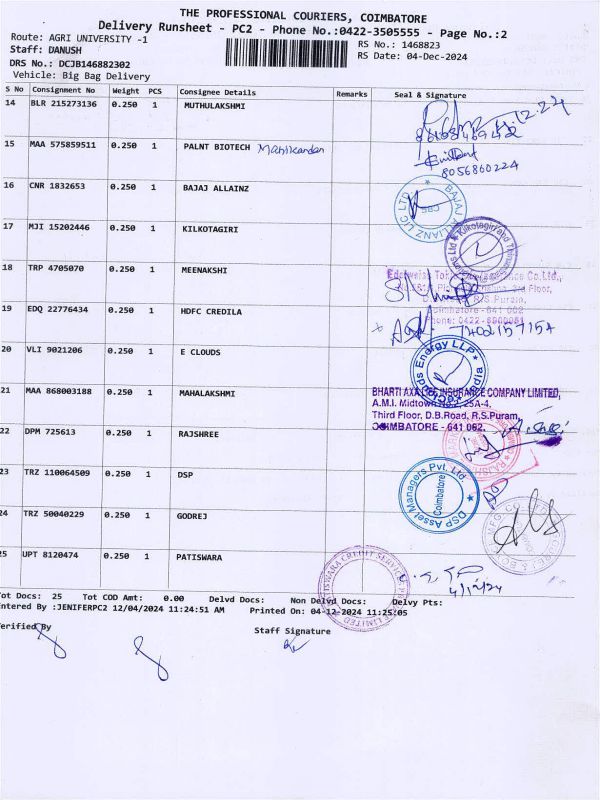 THE PROFESSIONAL COURIERS, COIMBATORE
Delivery Runsheet - PC2 - Phone No.:0422-3505555 - Page No.:2
Route: AGRI UNIVERSITY -1
RS No.: 1468823
Staff: DANUSH
RS Date: 04-Dec-2024
DRS No.: DCJB146882302
Vehicle: Big Bag Delivery
S No Consignment No Weight PCS Consignee Details Remarks Seal & Signature
14 BLR 215273136 0.250 1 MUTHULAKSHMI
15 MAA 575859511 0.250 1 PALNT BIOTECH Manikandan
8056860224
16 CNR 1832653 0.250 1 BAJAJ ALLAINZ
BAJAJ ALLIANZ LIC LTD
CBS
17 MJI 15202446 0.250 1 KILKOTAGIRI
Kilkotagiri and
18 TRP 4705070 0.250 1 MEENAKSHI
Co.Ltd.,
Floor,
R.S.Puram,
641 002
19 EDQ 22776434 0.250 1 HDFC CREDILA
7402157154
20 VLI 9021206 0.250 1 E CLOUDS
Energy LLP
21 MAA 868003188 0.250 1 MAHALAKSHMI
BHARTI AXA LIFE INSURANCE COMPANY LIMITED,
A.M.I. Midtown No.7, 25A-4,
Third Floor, D.B.Road, R.S.Puram,
COIMBATORE - 641 002.
22 DPM 725613 0.250 1 RAJSHREE
23 TRZ 110064509 0.250 1 DSP
DSP Asset Managers Pvt. Ltd
Coimbatore
24 TRZ 50040229 0.250 1 GODREJ
25 UPT 8120474 0.250 1 PATISWARA
4/12/24
Tot Docs: 25 Tot COD Amt: 0.00 Delvd Docs: Non Delvd Docs: Delvy Pts:
Entered By :JENIFERPC2 12/04/2024 11:24:51 AM Printed On: 04-12-2024 11:25:05
Verified By
Staff Signature